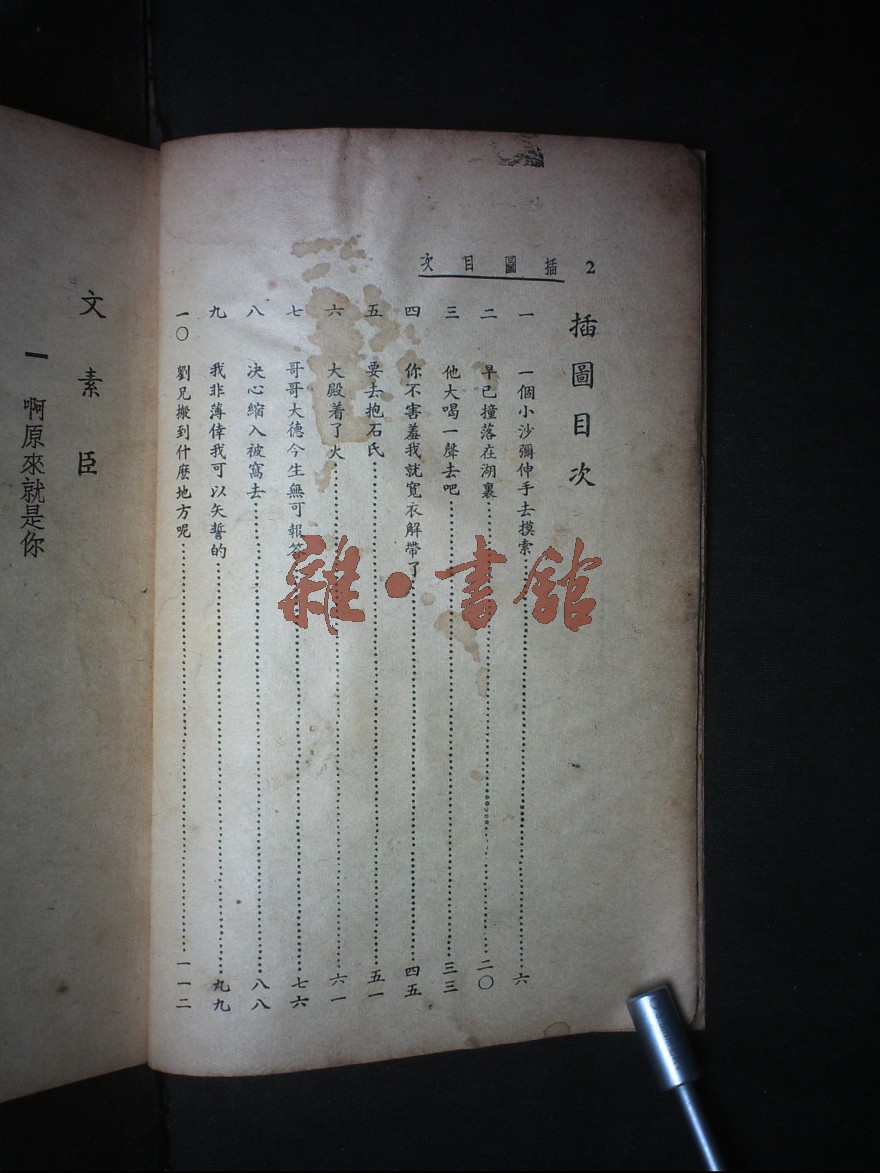 2 插圖目次
插圖目次
一 一個小沙彌伸手去摸索 六
二 早已撞落在湖裏 二〇
三 他大喝一聲去吧 三三
四 你不害羞我就寬衣解帶了 四五
五 要去抱石氏 五一
六 大殿着了火 六一
七 哥哥大德今生無可報答 七六
八 决心縮入被窩去 八八
九 我非薄倖我可以矢誓的 九九
一〇 劉兄搬到什麽地方呢 一一二
文素臣
一 啊原來就是你
雜·書館